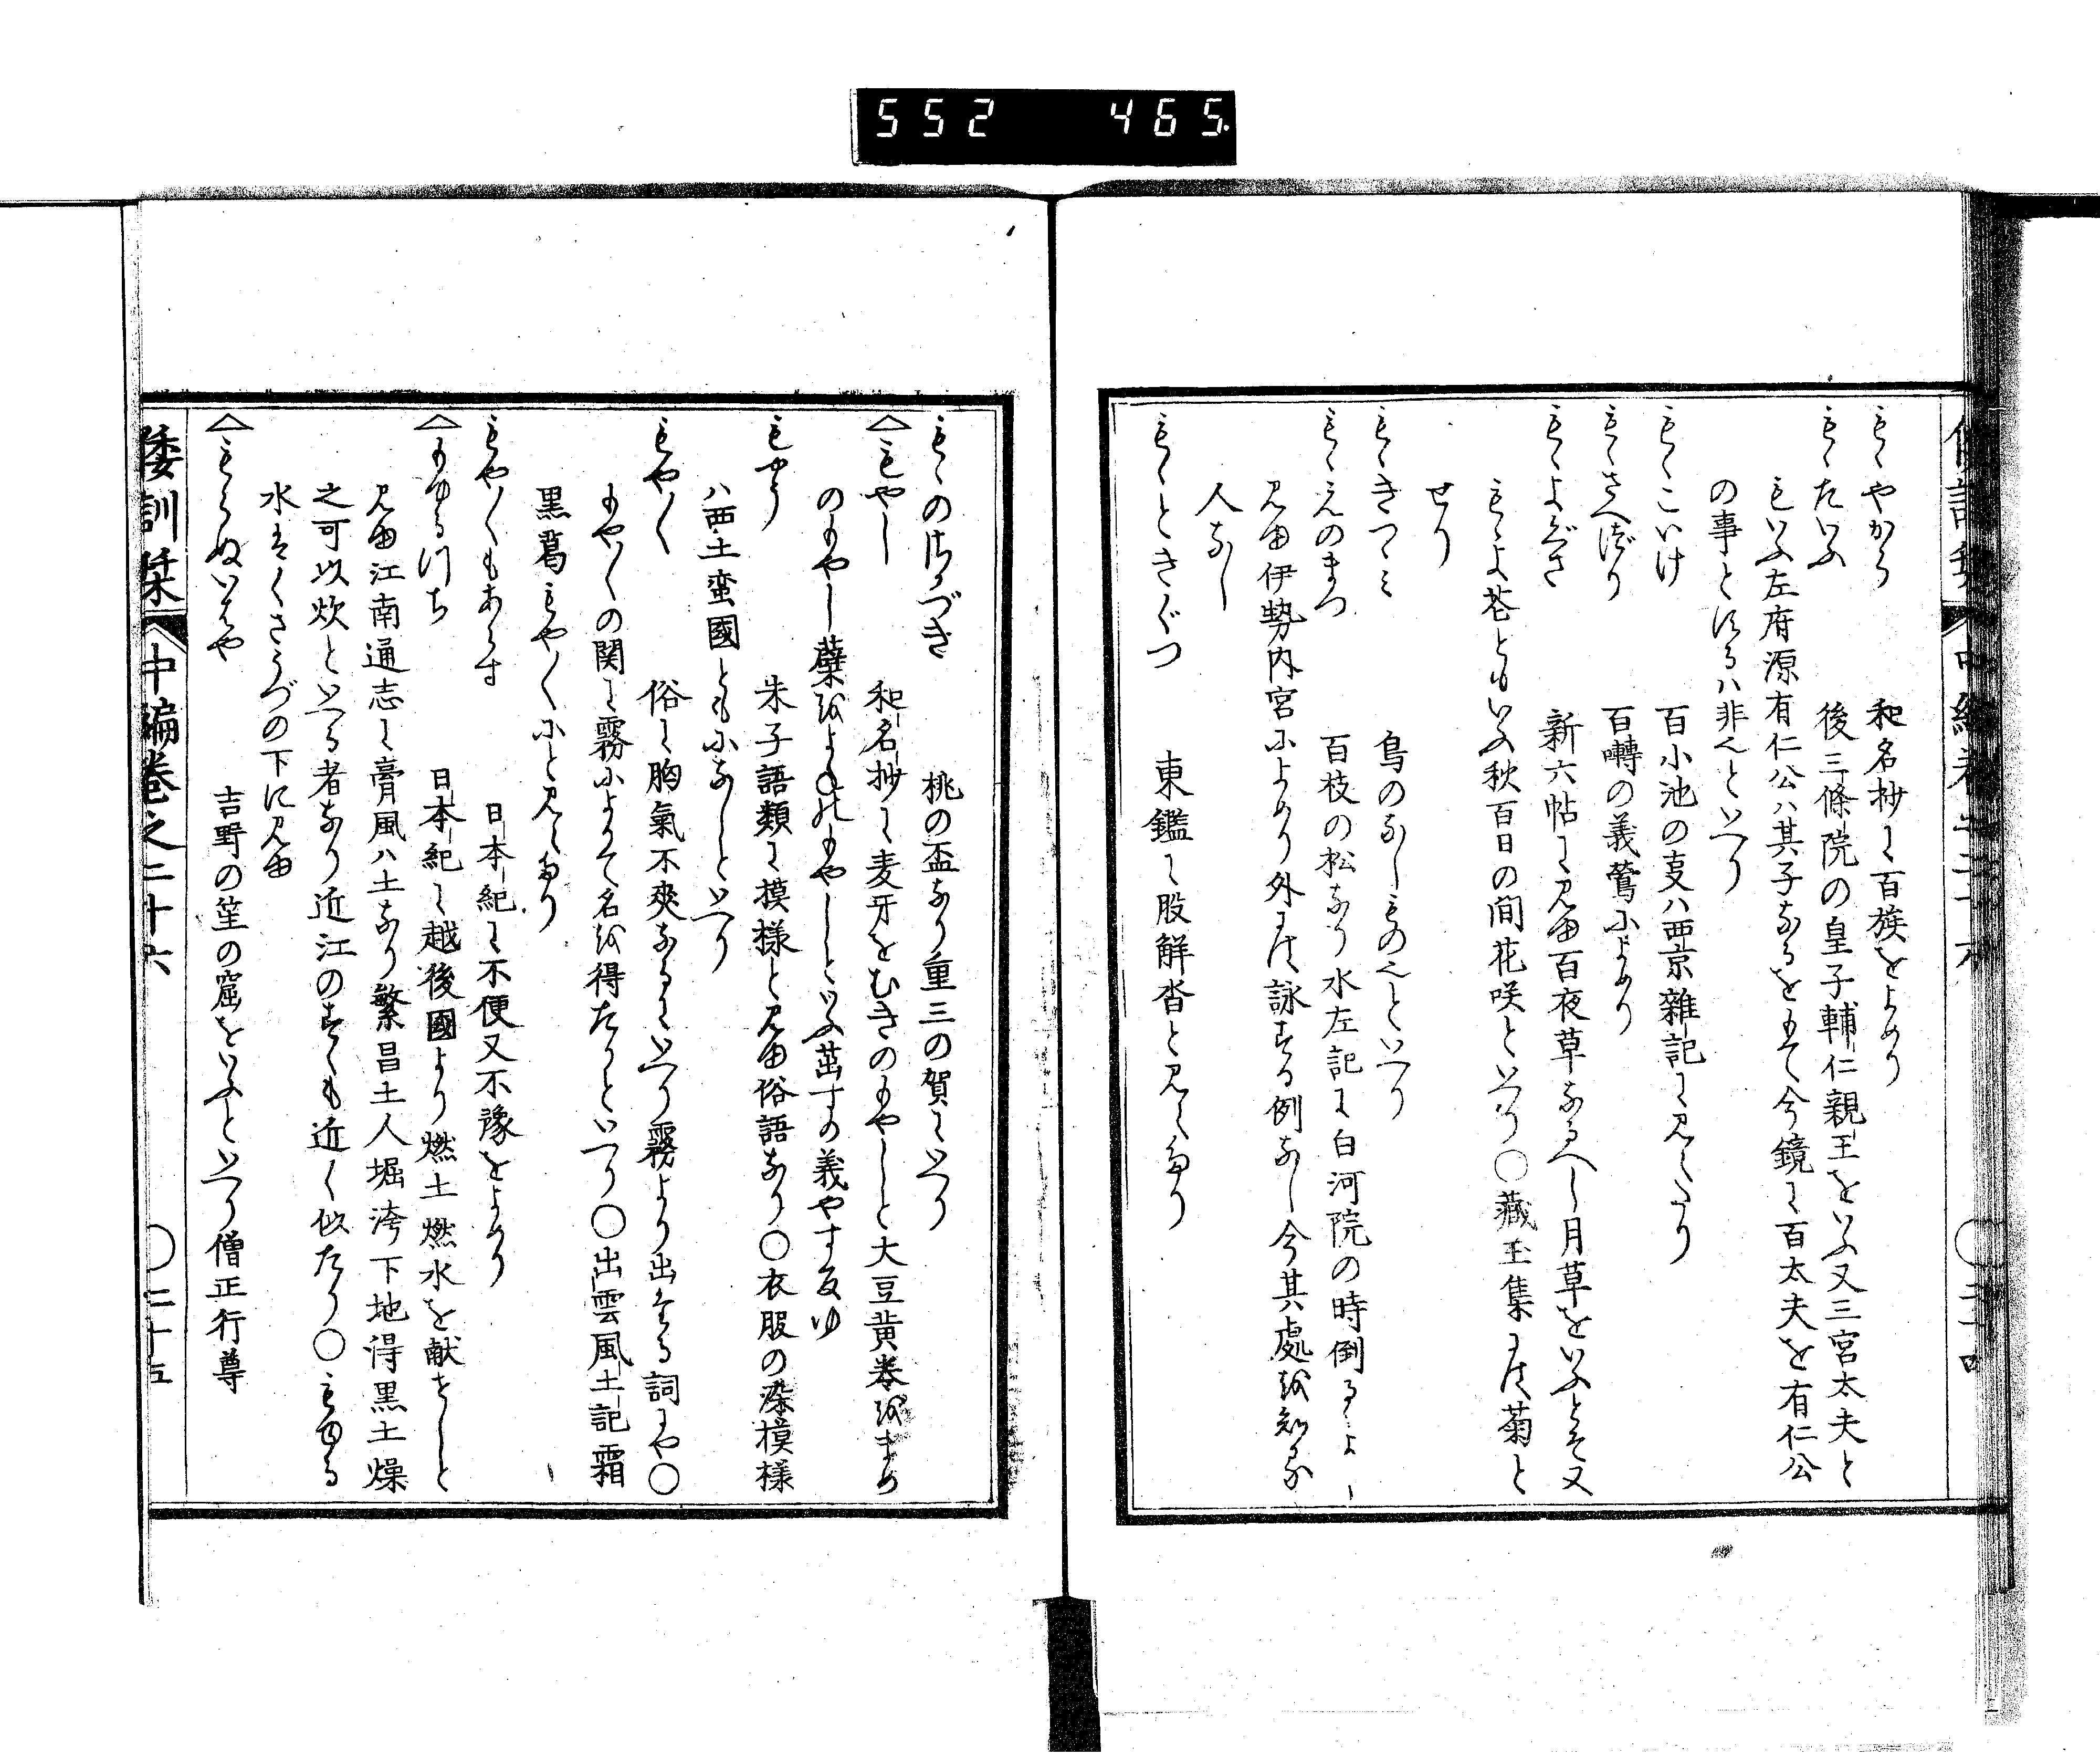 552 465.
もゝやから 和名抄に百族をよめり
もゝたいふ 後三條院の皇子輔仁親王をいふ又三宮太夫と
もいふ左府源有仁公ハ其子なるをもて今鏡に百太夫を有仁公
の事とするハ非也といへり
もゝこいけ 百小池の支ハ西京雜記に見えたり
もゝさへづり 百囀の義鶯によめり
もゝよぐさ 新六帖に見ゆ百夜草なるへし月草をいふとそ又
もゝよ花ともいふ秋百日の间花咲といへり○藏玉集にハ菊と
せり
もゝきつゝミ 鳥のなしもの也といへり
もゝえのまつ 百枝の松なり水左記に白河院の時倒るよし
見ゆ伊勢内宮によめり外にハ詠する例なし今其處を知る
人なし
もゝときぐつ 東鑑に股解沓と見えたり
もゝのさかづき 桃の盃なり重三の賀にいへり
△もやし 和名抄に麦牙をむきのもやしと大豆黄巻をまめ
のもやし蘖をよねのもやしといふ茁すの義やす反ゆ
もやう 朱子語類に摸様と見ゆ俗語なり○衣服の染摸様
ハ西土蛮國ともになしといへり
もや〱 俗に胸氣不爽なるにいへり霧より出たる詞にや○
もや〱の関に霧によりて名を得たりといへり○出雲風土記霜
黒葛もや〱にと見えたり
もや〱もあらす 日本紀に不便又不豫をよめり
△もゆるつち 日本紀に越後國より燃土燃水を献すと
見ゆ江南通志に膏風ハ土なり繁昌土人堀洿下地得黒土燥
之可以炊といへる者なり近江のすくも近く似たり○もゆる
水はくさうづの下に見ゆ
△もらぬいはや 吉野の笙の窟をいふといへり僧正行尊
倭訓栞 中編巻之二十六 ○二十五